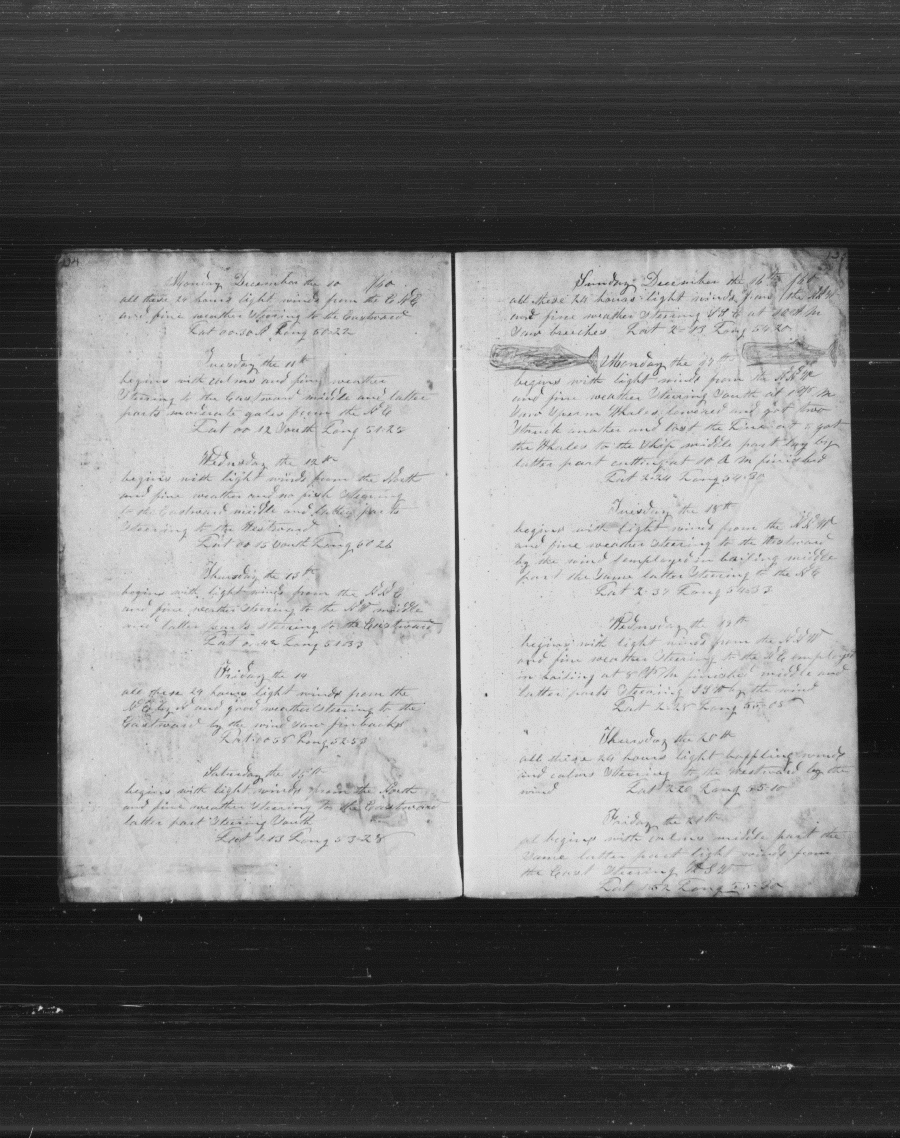 Monday December the 10 /60
all these 24 hours light winds from the E N E
and fine weather steering to the Eastward
Lat 00-30 S Long 51-22
Tuesday the 11th
begins with calms and fine weather
steering to the Eastward middle and latter
parts moderate gales from the N E
Lat 00 12 South Long 51-28
Wednsday the 12th
begins with light winds from the North
and fine weather and no fish steering
to the Eastward middle and latter parts
steering to the Westward
Lat 00 15 South Long 51 26
Thursday the 13th
begins with light winds from the N N E
and fine weather steering to the N W middle
and latter parts steering to the Eastward
Lat 0-42 Long 51-33
Friday the 14
all these 24 hours light winds from the
N E by N and good weather steering to the
Eastward by the wind saw finbacks
Lat 00 58 Long 52-53
Saturday the 15th
begins with light winds from the North
and fine weather steering to the Eastward
latter part steering South
Lat 1-13 Long 53-28
Sunday December the 16th /60
all these 24 hours light winds from the
and fine weather steering at M
saw breaches Lat 2-13 Long 54 20
Monday the 17th
begins with light winds from the N N W
and fine weather steering South at 1 P M
saw Sperm Whales, lowered and got two
struck another and lost the Line out & got
the Whales to the Ship middle part lay by
latter part cutting at 10 A M finished
Lat 2-24 Long 54-30
Tuesday the 18th
begins with light winds from the N N W
and fine weather steering to the Westward
by the wind employed in boiling middle
part the same latter steering to the N E
Lat 2-37 Long 54-33
Wednsday the 19th
begins with light winds from the N N W
and fine weather steering to the employed
in boiling at 8 P M finished middle and
latter parts steering by the wind
Lat 2-28 Long
Thursday the 20th
all these 24 hours light baffling winds
and calms steering to the Westward by the
wind Lat 2 20 Long 55 10
Friday the 21th
begins with calms middle part the
same latter part light winds from
the East steering W S W
Lat Long